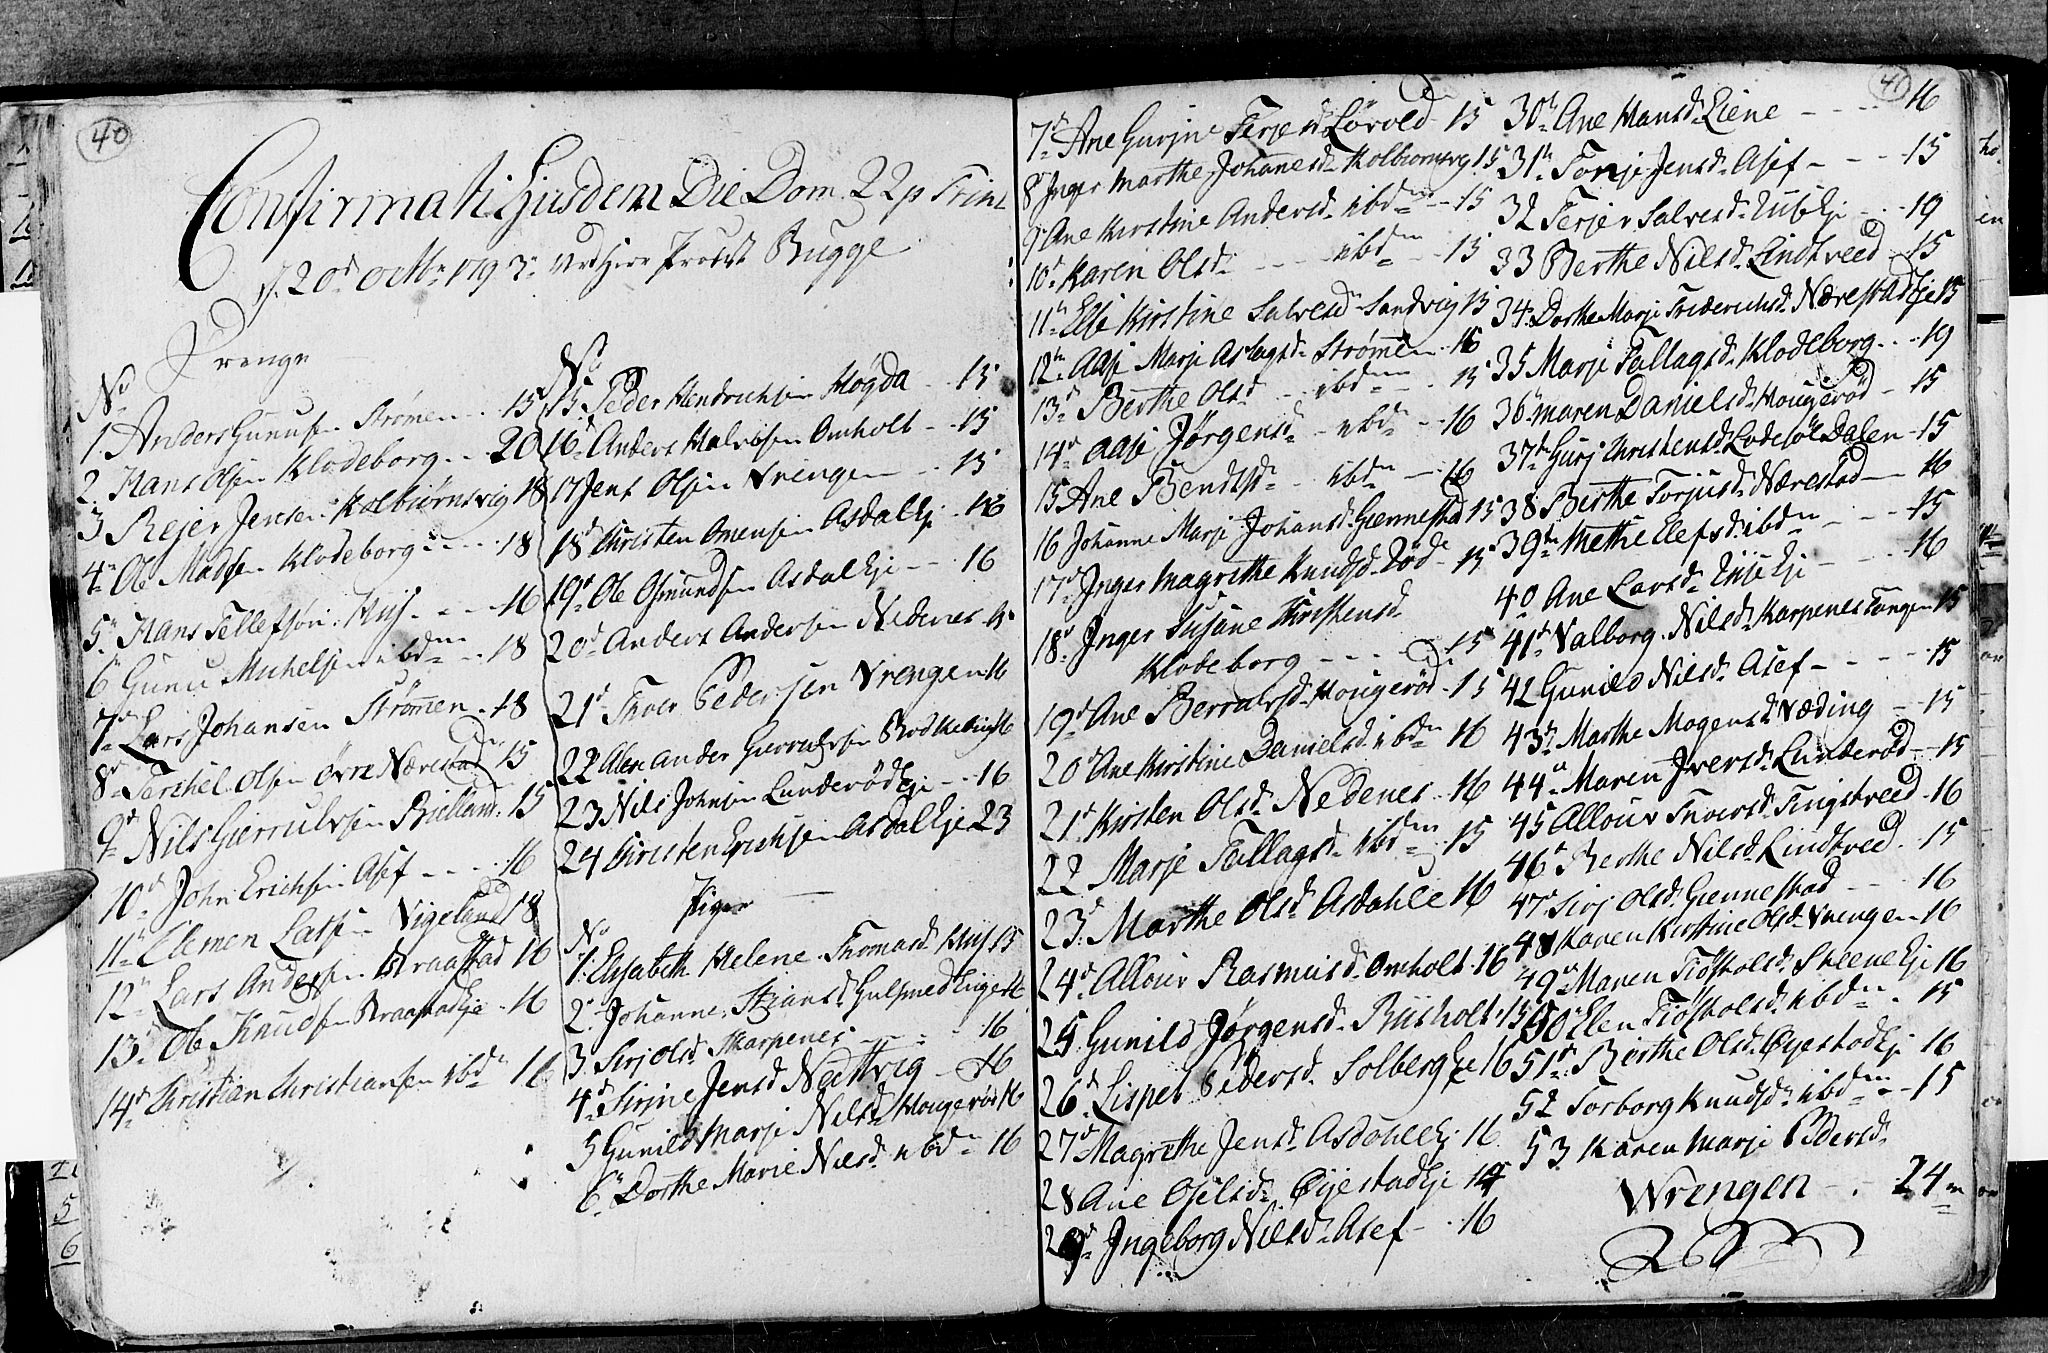 40
Confirmati Ejusdem Die Dom. 22 p Trinit
d. 20d Octbr 1793 ved Herr Probst Bugge
Drenge
No
1. Anders Gunnufsen Strømen . . 15
2. Hans Olsen Klodeborg . . 20
3 Rejer Jensen Kolbiørnsvig 18
4. Ole Madsen Klodeborg . . . . 18
5. Hans Tellefsøn Huf . - - 16
6 Gunu Michelsen ibdm . . 18
7. Lars Johansen Strømen . 18
8. Terchel Olsen øvre Nærestad 15
9. Nils Gierrulvsen Bielland . 15
10. John Erichsen Asef - - - . 16
11. Clemen Larsen Vigeland 18
12. Lars Andersen Braastad 16
13. Ole Knudsen Braastadeje . 16
14. Christian Christiansen ibdm 16
No
15 Peder Hendrichsen Høgda . . 15
16. Anders Halvorsen Omholt - . 15
17 Jens Olsen Vrengen - . 15
18. Christen Omensen Asdal Ej . . 16
19. Ole Osmundsen Asdal Eje - - 16
20. Anders Andersen Nedenes
21. Thoer Pedersen Vrengen 16
22 Alexander Gierrulfsen 16
23 Nils Johnsen Lunderød Eje - . 16
24 Christen Erichsen Asdal Eje 23
Piger
No
1. Elisabeth Helene Thomasd Huf 15
2. Johanne Stiansd Gulsmedeng
3. Sirj Olsd Skarpenes - - - 16
4. Sirine Jensd Nedtvig - 16
5 Gunild Marje Nilsd Hougerød 16
6. Dorthe Marie Nilsd ibdm 16
41
7. Ane Gurine Terjesd Lørved 15
8 Inger Marthe Johanesd Kolbiørnsvig 15
9. Ane Kirstine Andersd ibdm - . 15
10. Karen Olsd . - - - ibdm . . 15
11. Else Kirstine Salvesd Sandvig 15
12. Aase Marje Aslagsd Strømen . 16
13. Berthe Olsd . . ibdm . 15
14. Aase Jørgensd - ibdm . . 16
15 Ane Bendtsd . ibdm - . 16
16 Johanne Marje Johansd Giennestad 15
17. Inger Magrethe Knudsd Rød . 15
18. Inger Susane Christensd
Klodeborg - - - . . 15
19. Ane Berrulvsd Hougerød . 15
20. Ane Kirstine Danielsd ibdm 16
21. Kirsten Olsd Nedenes . 16
22 Marje Tallagsd ibdm . 15
23. Marthe Olsd Asdahle 16
24. Allour Rasmusd Omholt . 16
25 Gunild Jørgensd Rusholt . 15
26. Lispet Pedersd Solberg Eje 16
27. Magrethe Jensd Asdahl Ej 16
28 Ane Osulsd Øyestad Ej 17
29. Ingeborg Nilsd Asef - . 16
30. Ane Hansd Liene - - - . 16
31. Tonje Jensd Asef - - - . 15
32 Terjer Salvesd Ej - . . 19
33 Berthe Nilsd Lindtveed . 15
34. Dorthe Marje Friderichsd Nærestad Eje 15
35 Marje Tallagsd Klodeborg . . . 19
36. Maren Danielsd Hougerød - 15
37. Gurj Christensd Lodesøl Dalen . 15
38 Berthe Torjusd Nærestad - 16
39. Methe Elefsd ibdm - - - . 15
40 Ane Larsd Ej - - . 16
41. Valborg Nilsd Skarpenes Tangen 15
42 Gunild Nilsd Asef - - - - . 15
43. Marthe Mogensd Væding - . 15
44. Maren Iversd Lunderød - . 15
45 Allour Thoersd Tingstveed . 16
46. Berthe Nilsd Lindtved . 15
47. Sirj Olsd Giennestad - - - 16
48 Karen Kirstine Olsd Vrengen . 16
49. Maren Tiøstholsd Steene Ej 16
50 Elen Tiøstholsd ibdm . . 15
51. Berthe Olsd Øyestad Ej 16
52 Torborg Knudsd ibdm - . 15
53. Karen Marje Pedersd
Wrengen - . . 24